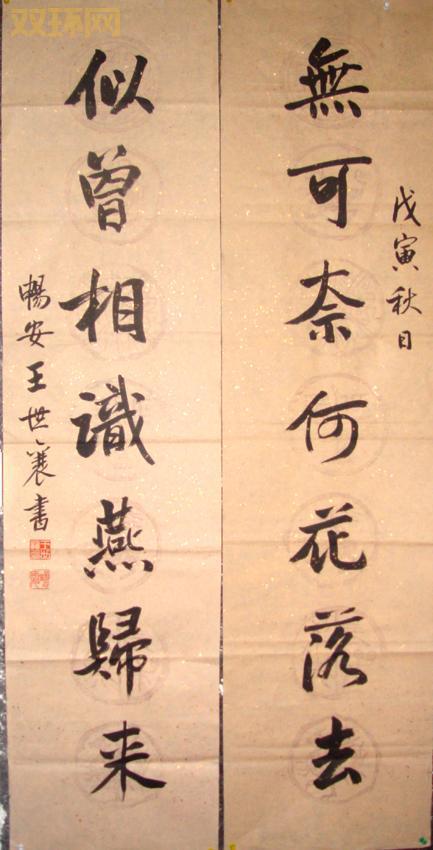 戊寅秋日
無可奈何花落去
似曾相識燕歸来
暢安王世襄書
双环网